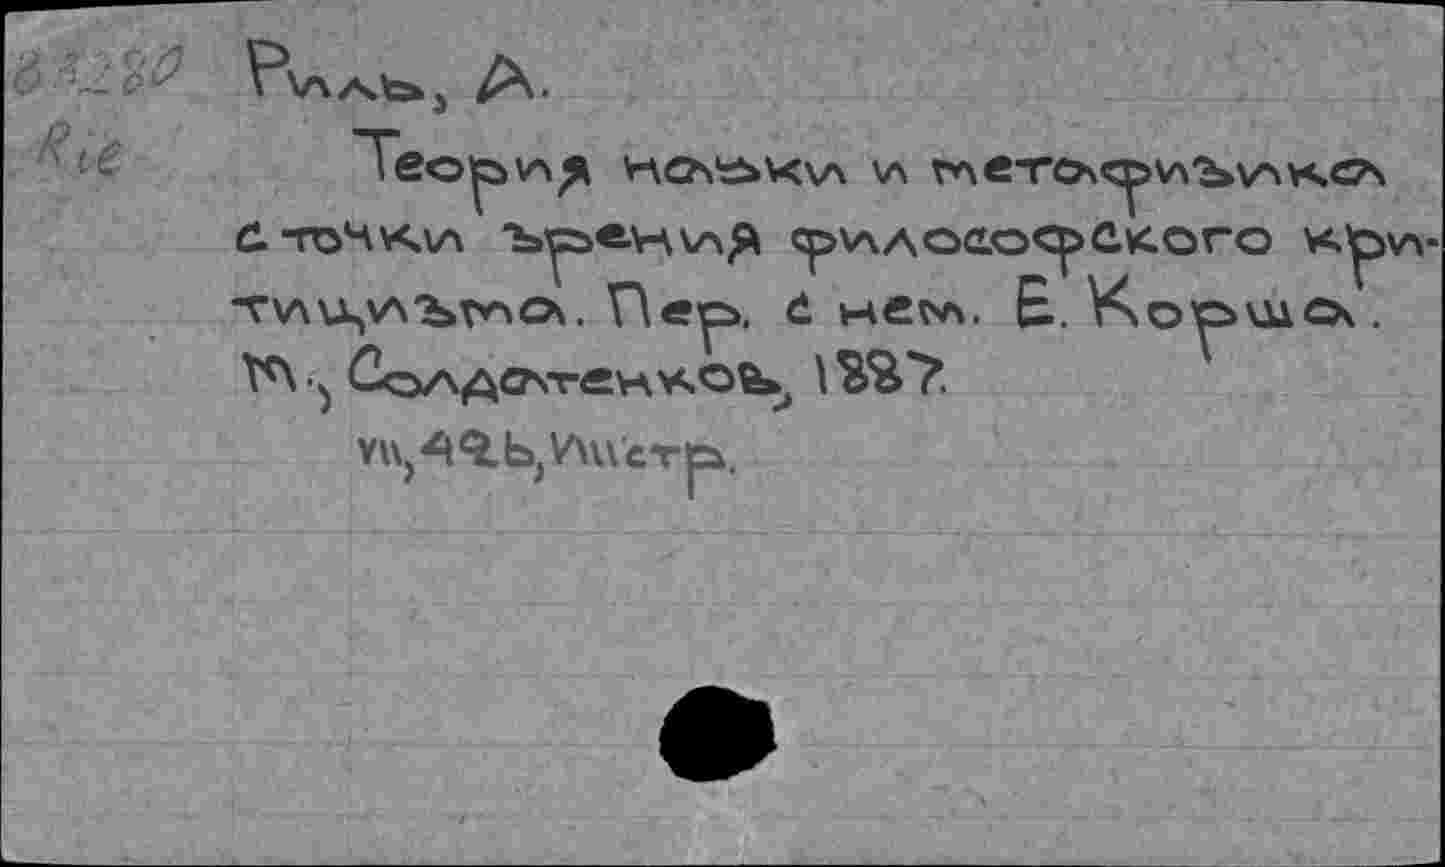 Риль, А.
Теорія науки и метафизика
с точки зрения философского кри-
тицизма. Пер. с нем. Е. Корша.
М., Солдатенковъ, 1887.
Rie